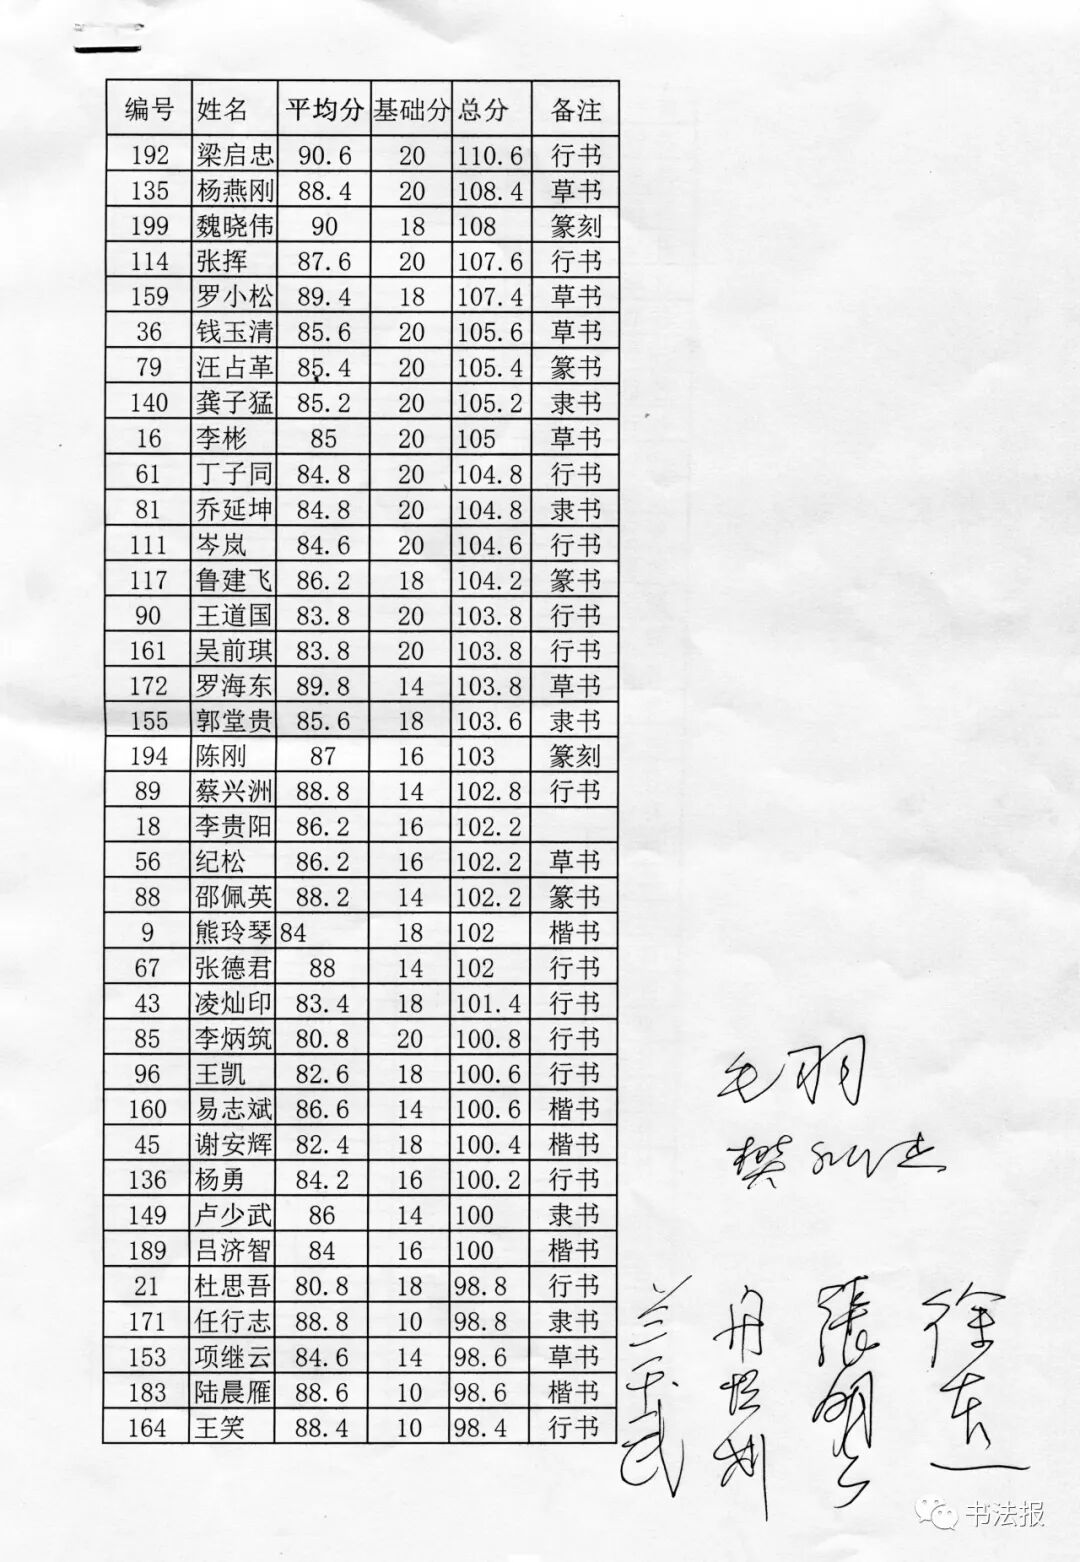 编号 姓名 平均分 基础分 总分 备注
192 梁启忠 90.6 20 110.6 行书
135 杨燕刚 88.4 20 108.4 草书
199 魏晓伟 90 18 108 篆刻
114 张挥 87.6 20 107.6 行书
159 罗小松 89.4 18 107.4 草书
36 钱玉清 85.6 20 105.6 草书
79 汪占革 85.4 20 105.4 篆书
140 龚子猛 85.2 20 105.2 隶书
16 李彬 85 20 105 草书
61 丁子同 84.8 20 104.8 行书
81 乔延坤 84.8 20 104.8 隶书
111 岑岚 84.6 20 104.6 行书
117 鲁建飞 86.2 18 104.2 篆书
90 王道国 83.8 20 103.8 行书
161 吴前琪 83.8 20 103.8 行书
172 罗海东 89.8 14 103.8 草书
155 郭堂贵 85.6 18 103.6 隶书
194 陈刚 87 16 103 篆刻
89 蔡兴洲 88.8 14 102.8 行书
18 李贵阳 86.2 16 102.2
56 纪松 86.2 16 102.2 草书
88 邵佩英 88.2 14 102.2 篆书
9 熊玲琴 84 18 102 楷书
67 张德君 88 14 102 行书
43 凌灿印 83.4 18 101.4 行书
85 李炳筑 80.8 20 100.8 行书
96 王凯 82.6 18 100.6 行书
160 易志斌 86.6 14 100.6 楷书
45 谢安辉 82.4 18 100.4 楷书
136 杨勇 84.2 16 100.2 行书
149 卢少武 86 14 100 隶书
189 吕济智 84 16 100 楷书
21 杜思吾 80.8 18 98.8 行书
171 任行志 88.8 10 98.8 隶书
153 项继云 84.6 14 98.6 草书
183 陆晨雁 88.6 10 98.6 楷书
164 王笑 88.4 10 98.4 行书
毛羽
书法报